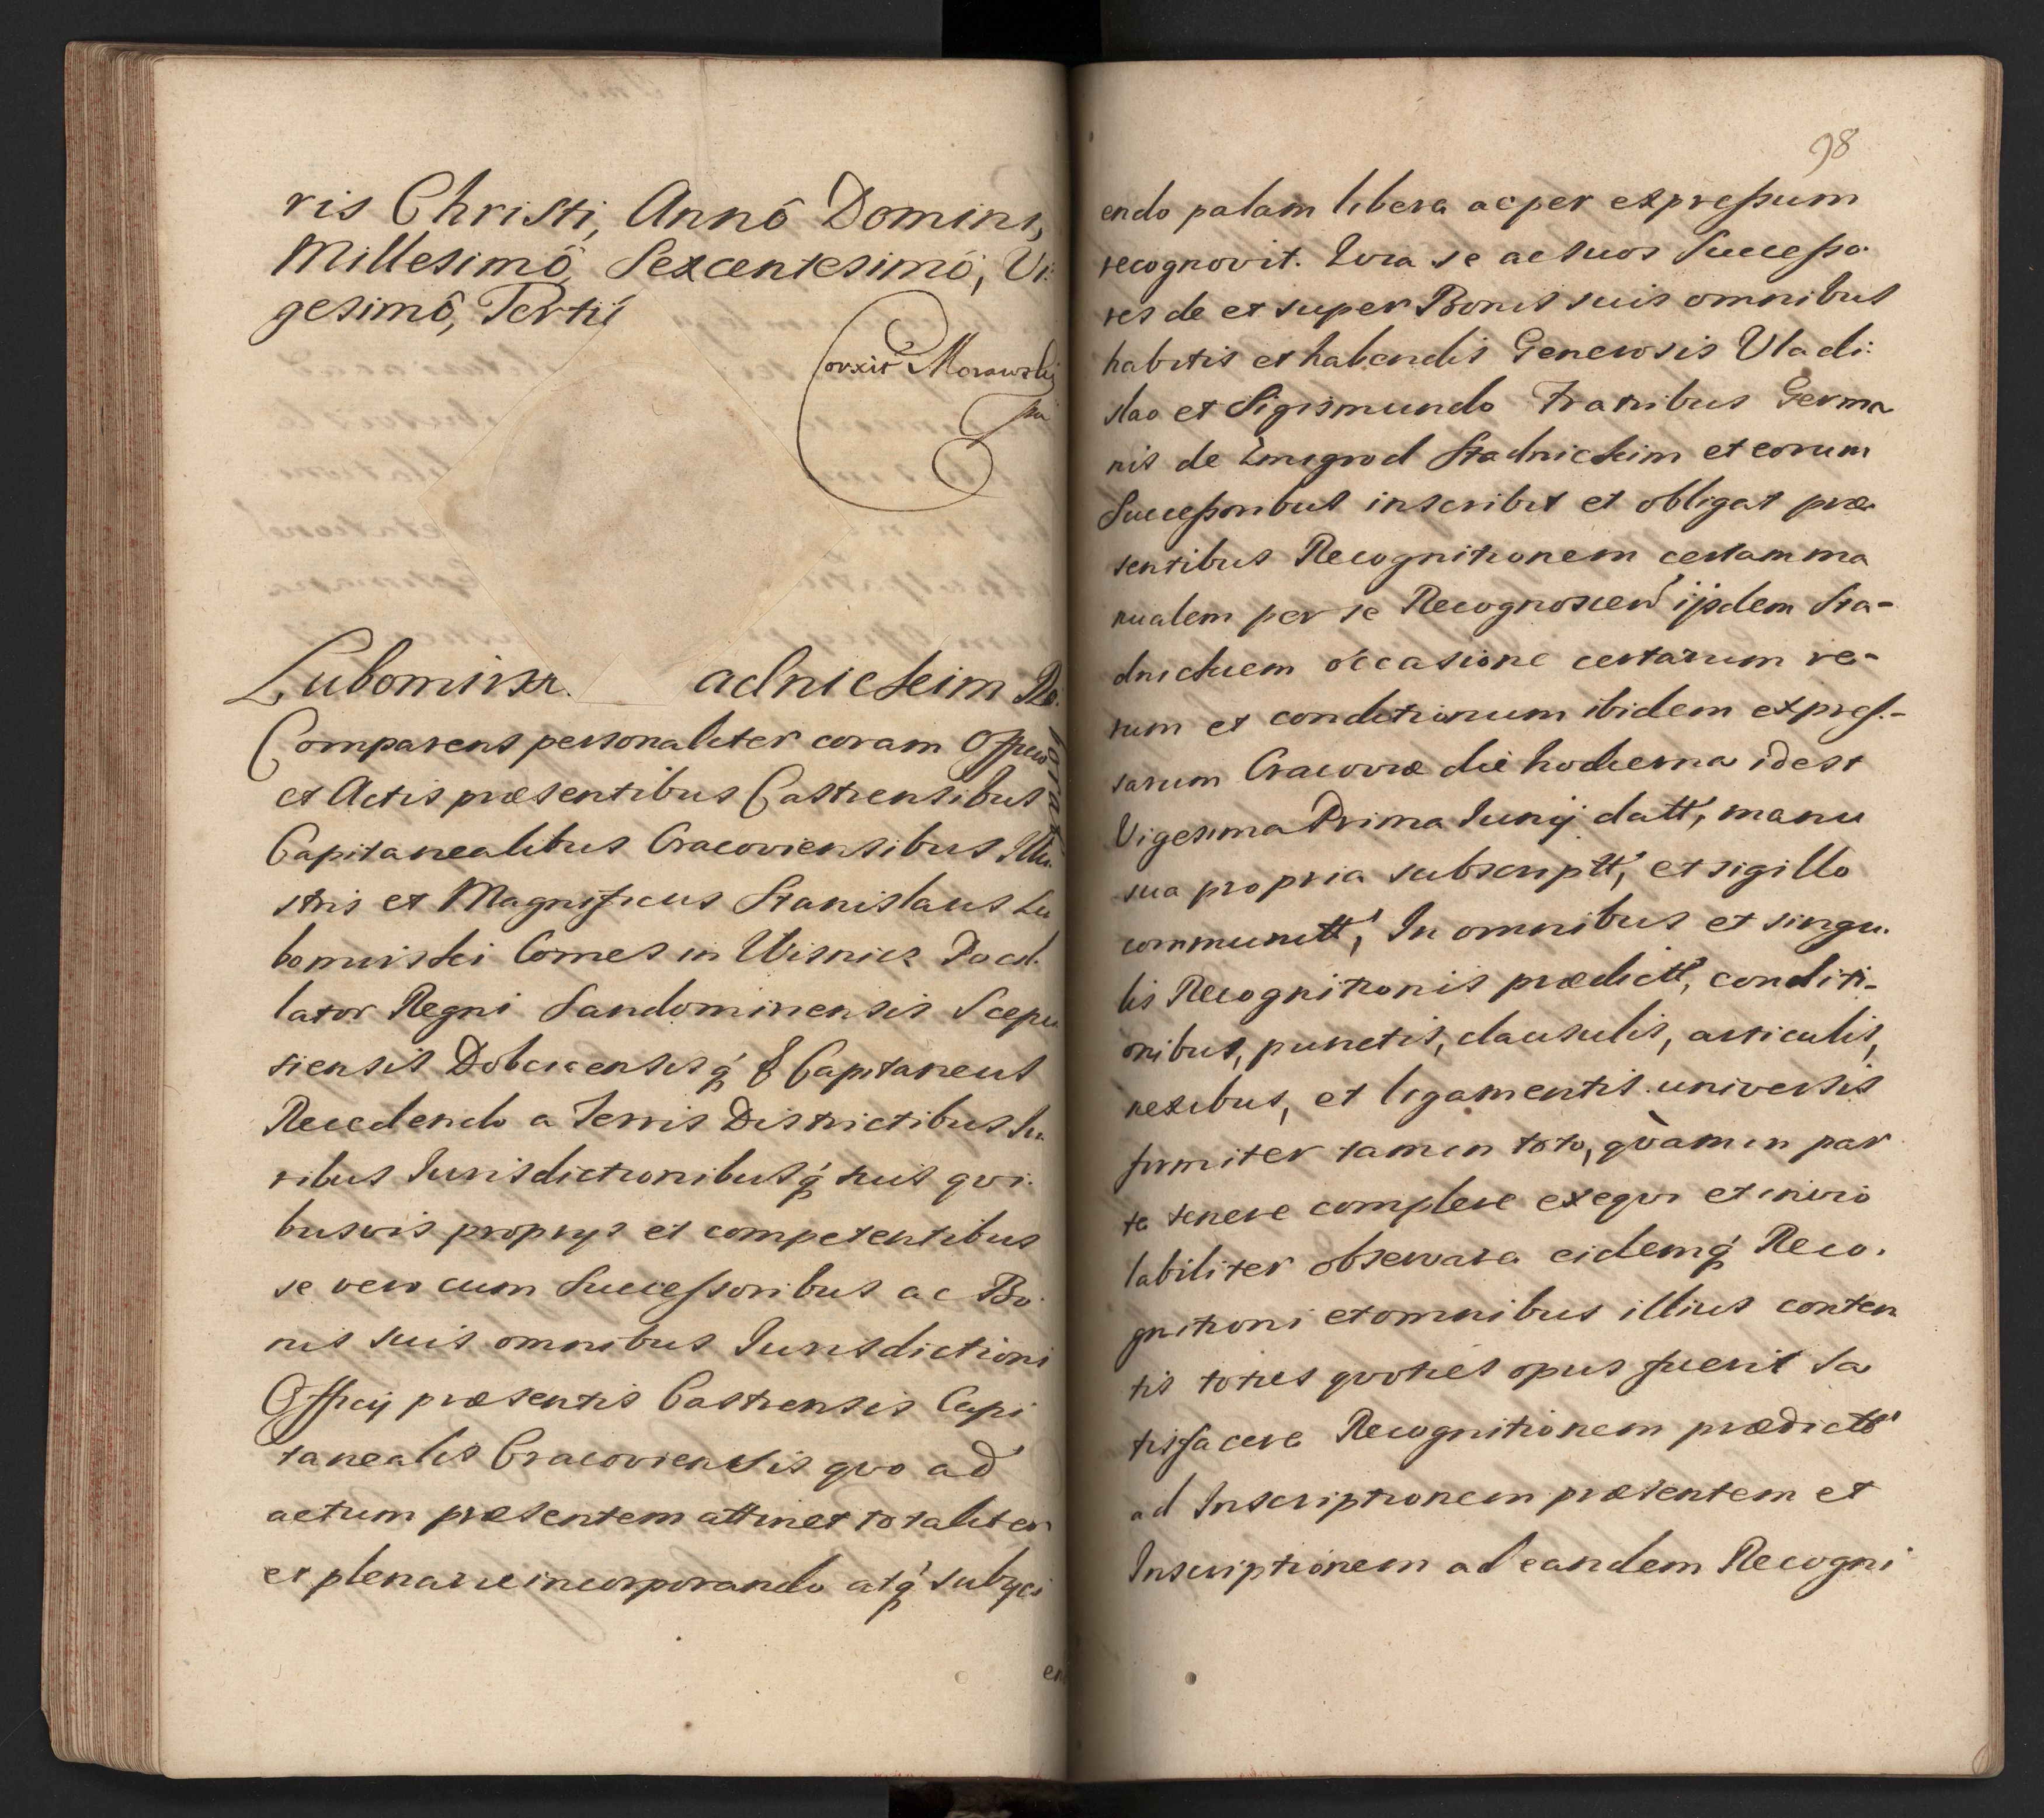 ris Christi, Annô Domini,
Millesimô, Sexcentesimô, Vi:
gesimô, Tertiî
Corxit Morawski
mp
Lubomirsk. adnickim Ro:
borat
Comparens personaliter coram Officio
et Actis præsentibus Castrensibus
Capitanealibus Cracoviensibus Illu.
stris et Magnificus Stanislaus Lu
bomirski Comes in Wisnicz Pocil.
lator Regni Sandomiriensis Scepu
siensis Dobcicensisq́ & Capitaneus
Recedendo a Terris Districtibus Iu.
ribus Iurisdictionibusq́ suis qvi.
busvis proprijs et competentibus
se vero cum Successoribus ac Bo.
nis suis omnibus Iurisdictioni
Officij præsentis Castrensis Capi
tanealis Cracoviensis qvo ad
actum præsentem attinet totaliter
et plenarie incorporando atq́ subijci
en
98
endo palam libere ac per expressum
recognovit. Qvia se ac suos Successo.
res de et super Bonis suis omnibus
habitis et habendis Generosis Vladi:
slao et Sigismundo Fratribus Germa
nis de Zmigrod Stadnickim et eorum
Successoribus inscribit et obligat præ
sentibus Recognitionem certam ma
nualem per se Recognoscen' ijsdem Sta-
dnickiem occasione certarum re-
rum et conditionum ibidem expres.-
sarum Cracoviæ die hodierna idest
Vigesima Prima Iunij datt', manu
sua propria subscriptt', et sigillo
communitt', In omnibus et singu.
lis Recognitionis prædictt', conditi-
onibus, punctis, clausulis, articulis,
nexibus, et ligamentis universis
firmiter tam in toto, qvàm in par
te tenere complere exeqvi et invio
labiliter observare eidemq́ Reco.
gnitioni et omnibus illius conten
tis toties qvoties opus fuerit sa
tisfacere Recognitionem prædictt'
ad Inscriptionem præsentem et
Inscriptionem ad eandem Recogni